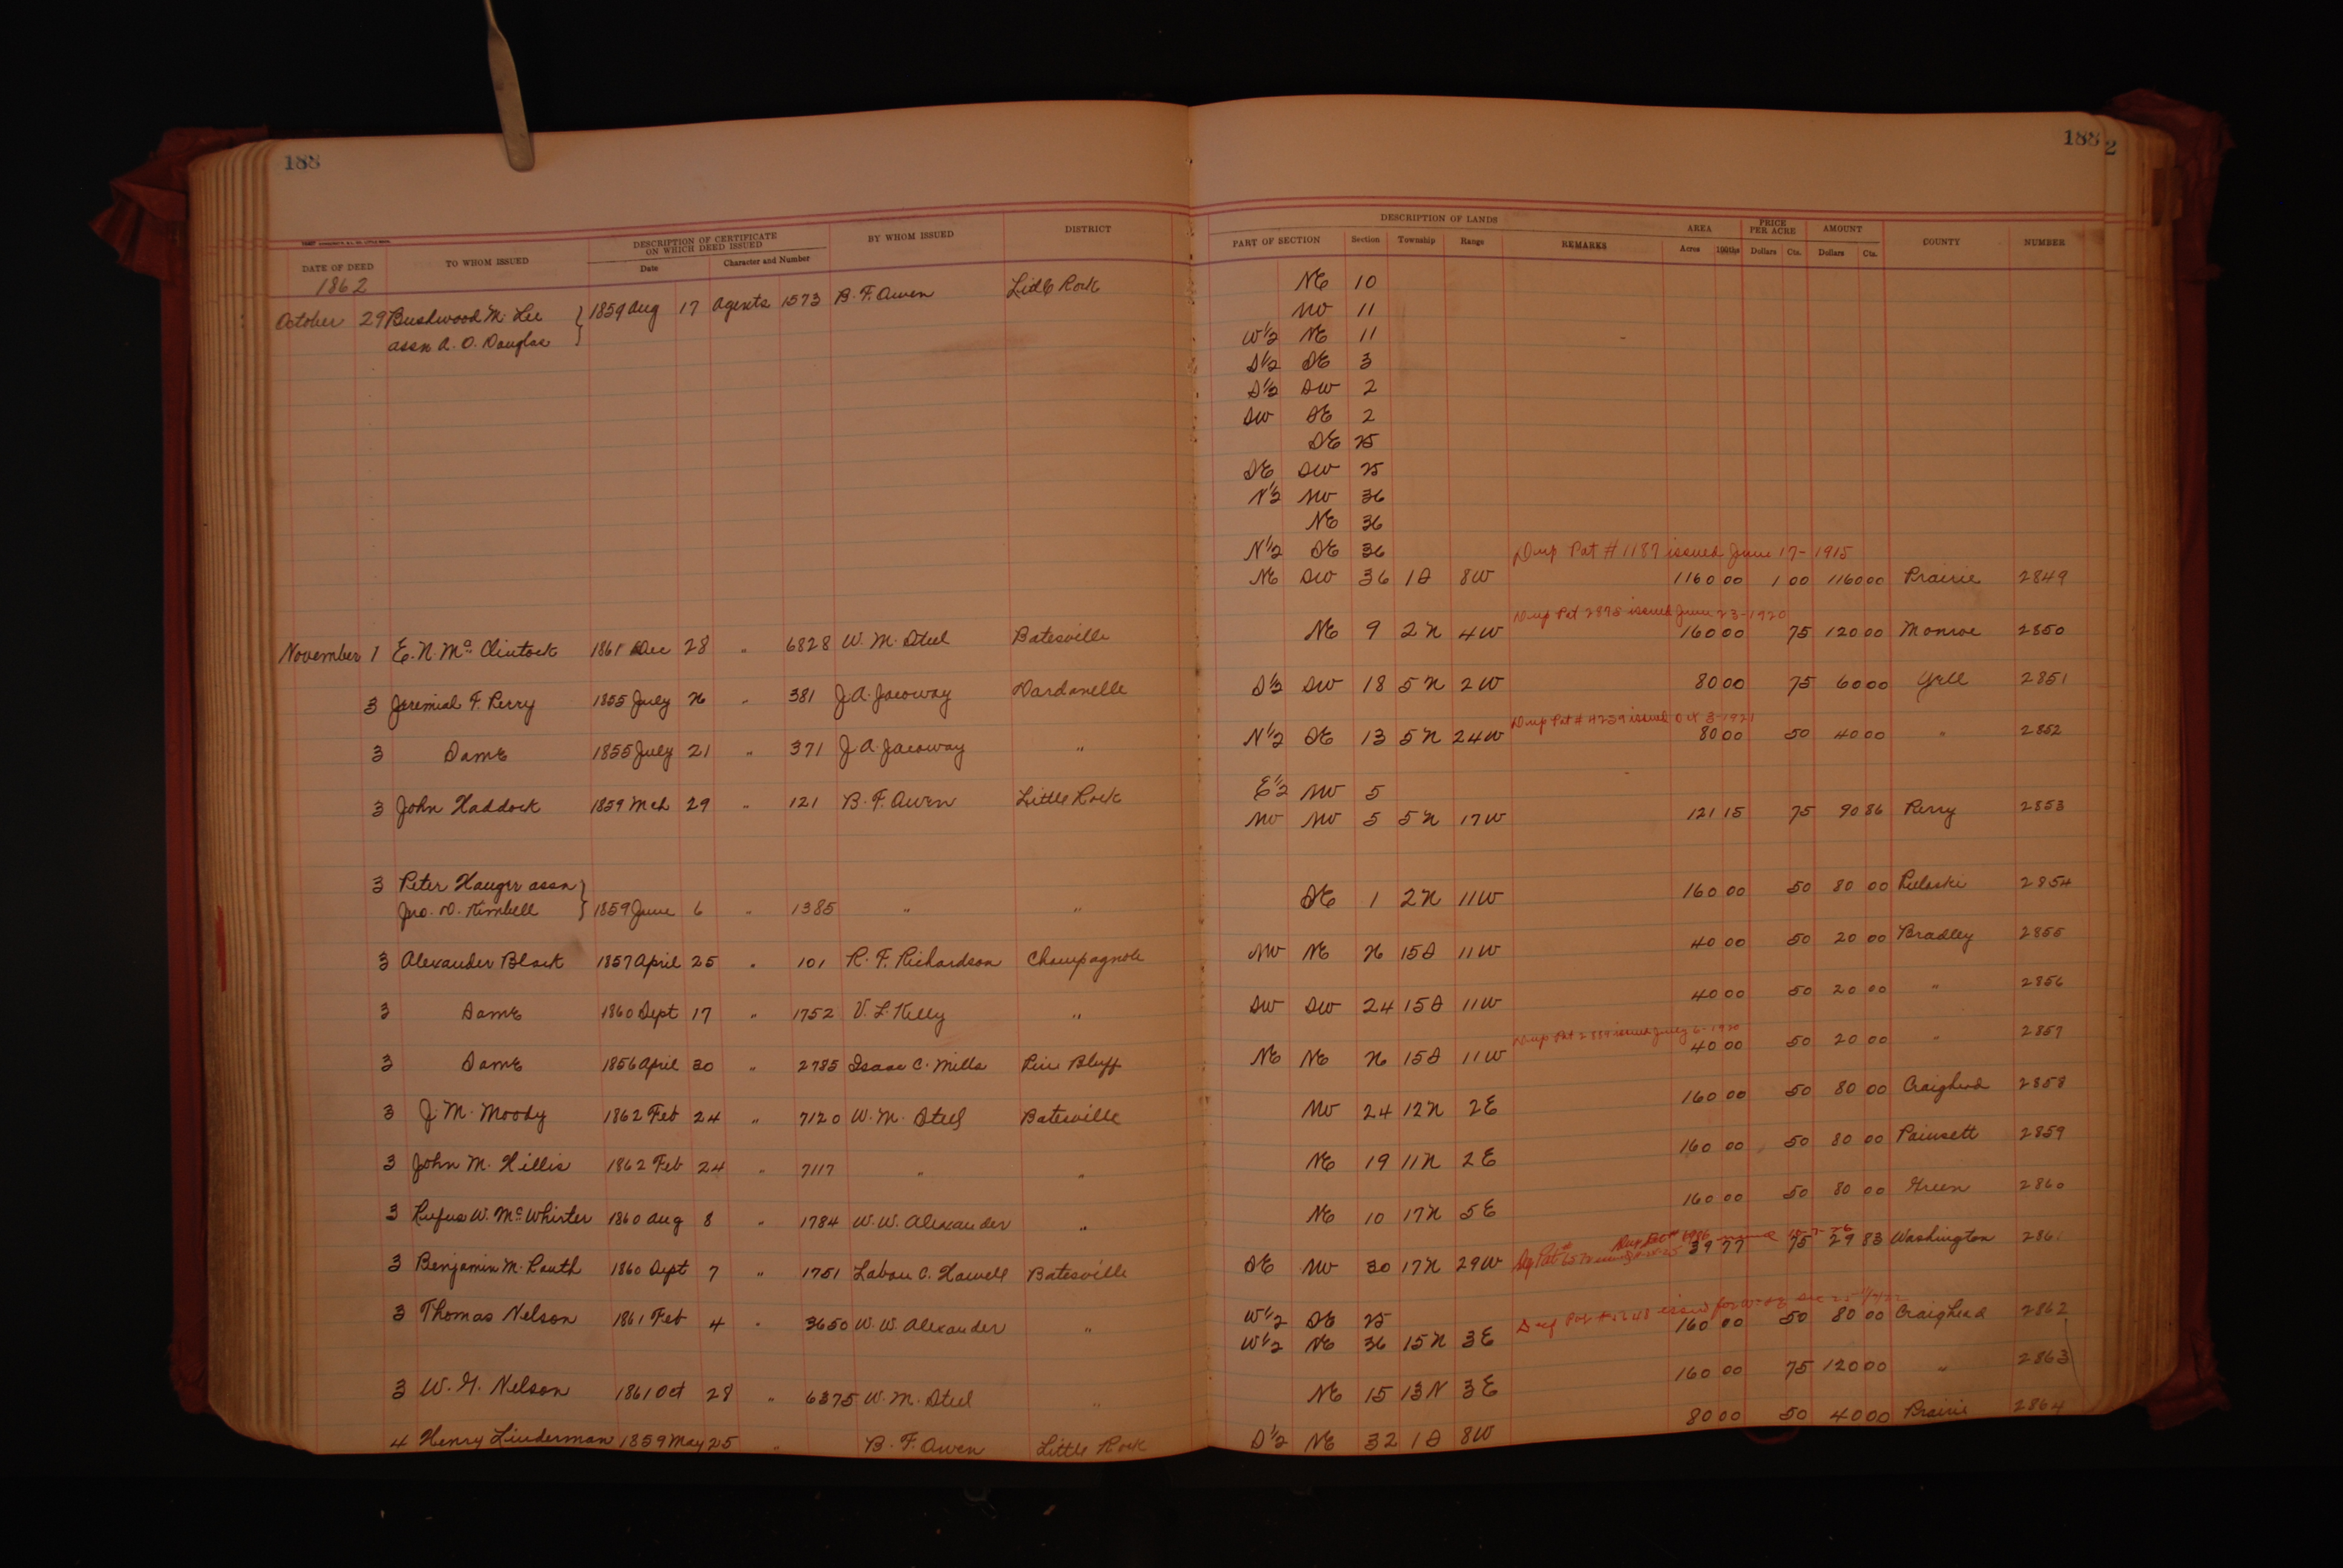 188
188
2
DATE OF DEED
TO WHOM ISSUED
DESCRIPTION OF CERTIFICATE ON WHICH DEED ISSUED
Date
Character and Number
BY WHOM ISSUED
DISTRICT
DESCRIPTION OF LANDS
PART OF SECTION
Section
Township
Range
REMARKS
AREA
Acres
100ths
PRICE PER ACRE
Dollars
Cts.
AMOUNT
Dollars
Cts.
COUNTY
NUMBER
1862
October 29 Bushwood M. Lee } 1859 Aug 17 Agents 1573 B. F. Owen NE 10
assn A. O. Douglas
NW 11
W½ NE 11
S½ SE 3
S½ SW 2
SW SE 2
SE 25
SE SW 25
N½ NW 36
NE 36
N½ SE 36 Dup Pat # 1187 issued June 17- 1915
NE SW 36 1S 8W 1160 00 1 00 1160 00 Prairie 2849
Dup Pat 2878 issued June 23-1920
November 1 E. N. Mc Clintock 1861 Dec 28 " 6828 W. M. Steel Batesville NE 9 2N 4W 160 00 75 120 00 Monroe 2850
3 Jeremiah F. Perry 1855 July 26 " 381 J. A. Jacoway Dardanelle S½ SW 18 5N 2W 80 00 75 60 00 Yell 2851
Dup Pat # 4239 issued Oct 3-1921
3 Same 1855 July 21 " 371 J. A. Jacoway " N½ SE 13 5N 24W 80 00 50 40 00 " 2852
3 John Haddock 1859 Mch 29 " 121 B. F. Owen Little Rock E½ NW 5
NW NW 5 5N 17W 121 15 75 90 86 Perry 2853
3 Peter Hauger assn }
Jno. D. Kimbell 1859 June 6 " 1385 " " SE 1 2N 11W 160 00 50 80 00 Pulaski 2854
3 Alexander Black 1857 April 25 " 101 R. F. Richardson Champagnole NW NE 26 15S 11W 40 00 50 20 00 Bradley 2855
3 Same 1860 Sept 17 " 1752 V. L. Kelly " SW SW 24 15S 11W 40 00 50 20 00 " 2856
3 Same 1856 April 30 " 2785 Isaac C. Mills Pine Bluff NE NE 26 15S 11W 40 00 50 20 00 " 2857
3 J. M. Moody 1862 Feb 24 " 7120 W. M. Steel Batesville NW 24 12N 2E 160 00 50 80 00 Craighead 2858
3 John M. Hillis 1862 Feb 24 " 7117 " " NE 19 11N 2E 160 00 50 80 00 Poinsett 2859
3 Rufus W. Mc Whirter 1860 Aug 8 " 1784 W. W. Alexander " NE 10 17N 5E 160 00 50 80 00 Green 2860
3 Benjamin M. Routh 1860 Sept 7 " 1751 Laban C. Howell Batesville SE NW 30 17N 29W 39 77 75 29 83 Washington 2861
3 Thomas Nelson 1861 Feb 4 " 3650 W. W. Alexander " W½ SE 25
W½ NE 36 15N 3E 160 00 50 80 00 Craighead 2862
3 W. G. Nelson 1861 Oct 28 " 6375 W. M. Steel " NE 15 13N 3E 160 00 75 120 00 " 2863
4 Henry Linderman 1859 May 25 " B. F. Owen Little Rock S½ NE 32 1S 8W 80 00 50 40 00 Prairie 2864